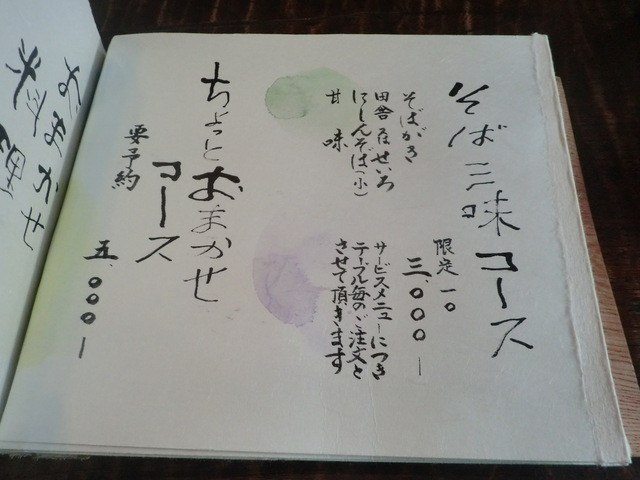 そば三昧コース
限定一〇
三、〇〇〇ー
そばがき
田舎 在 せいろ
にしんそば(小)
甘味
サービスメニューにつき
テーブル毎のご注文と
させて頂きます
ちょっとおまかせ
コース
要予約
五、〇〇〇ー
おまかせ